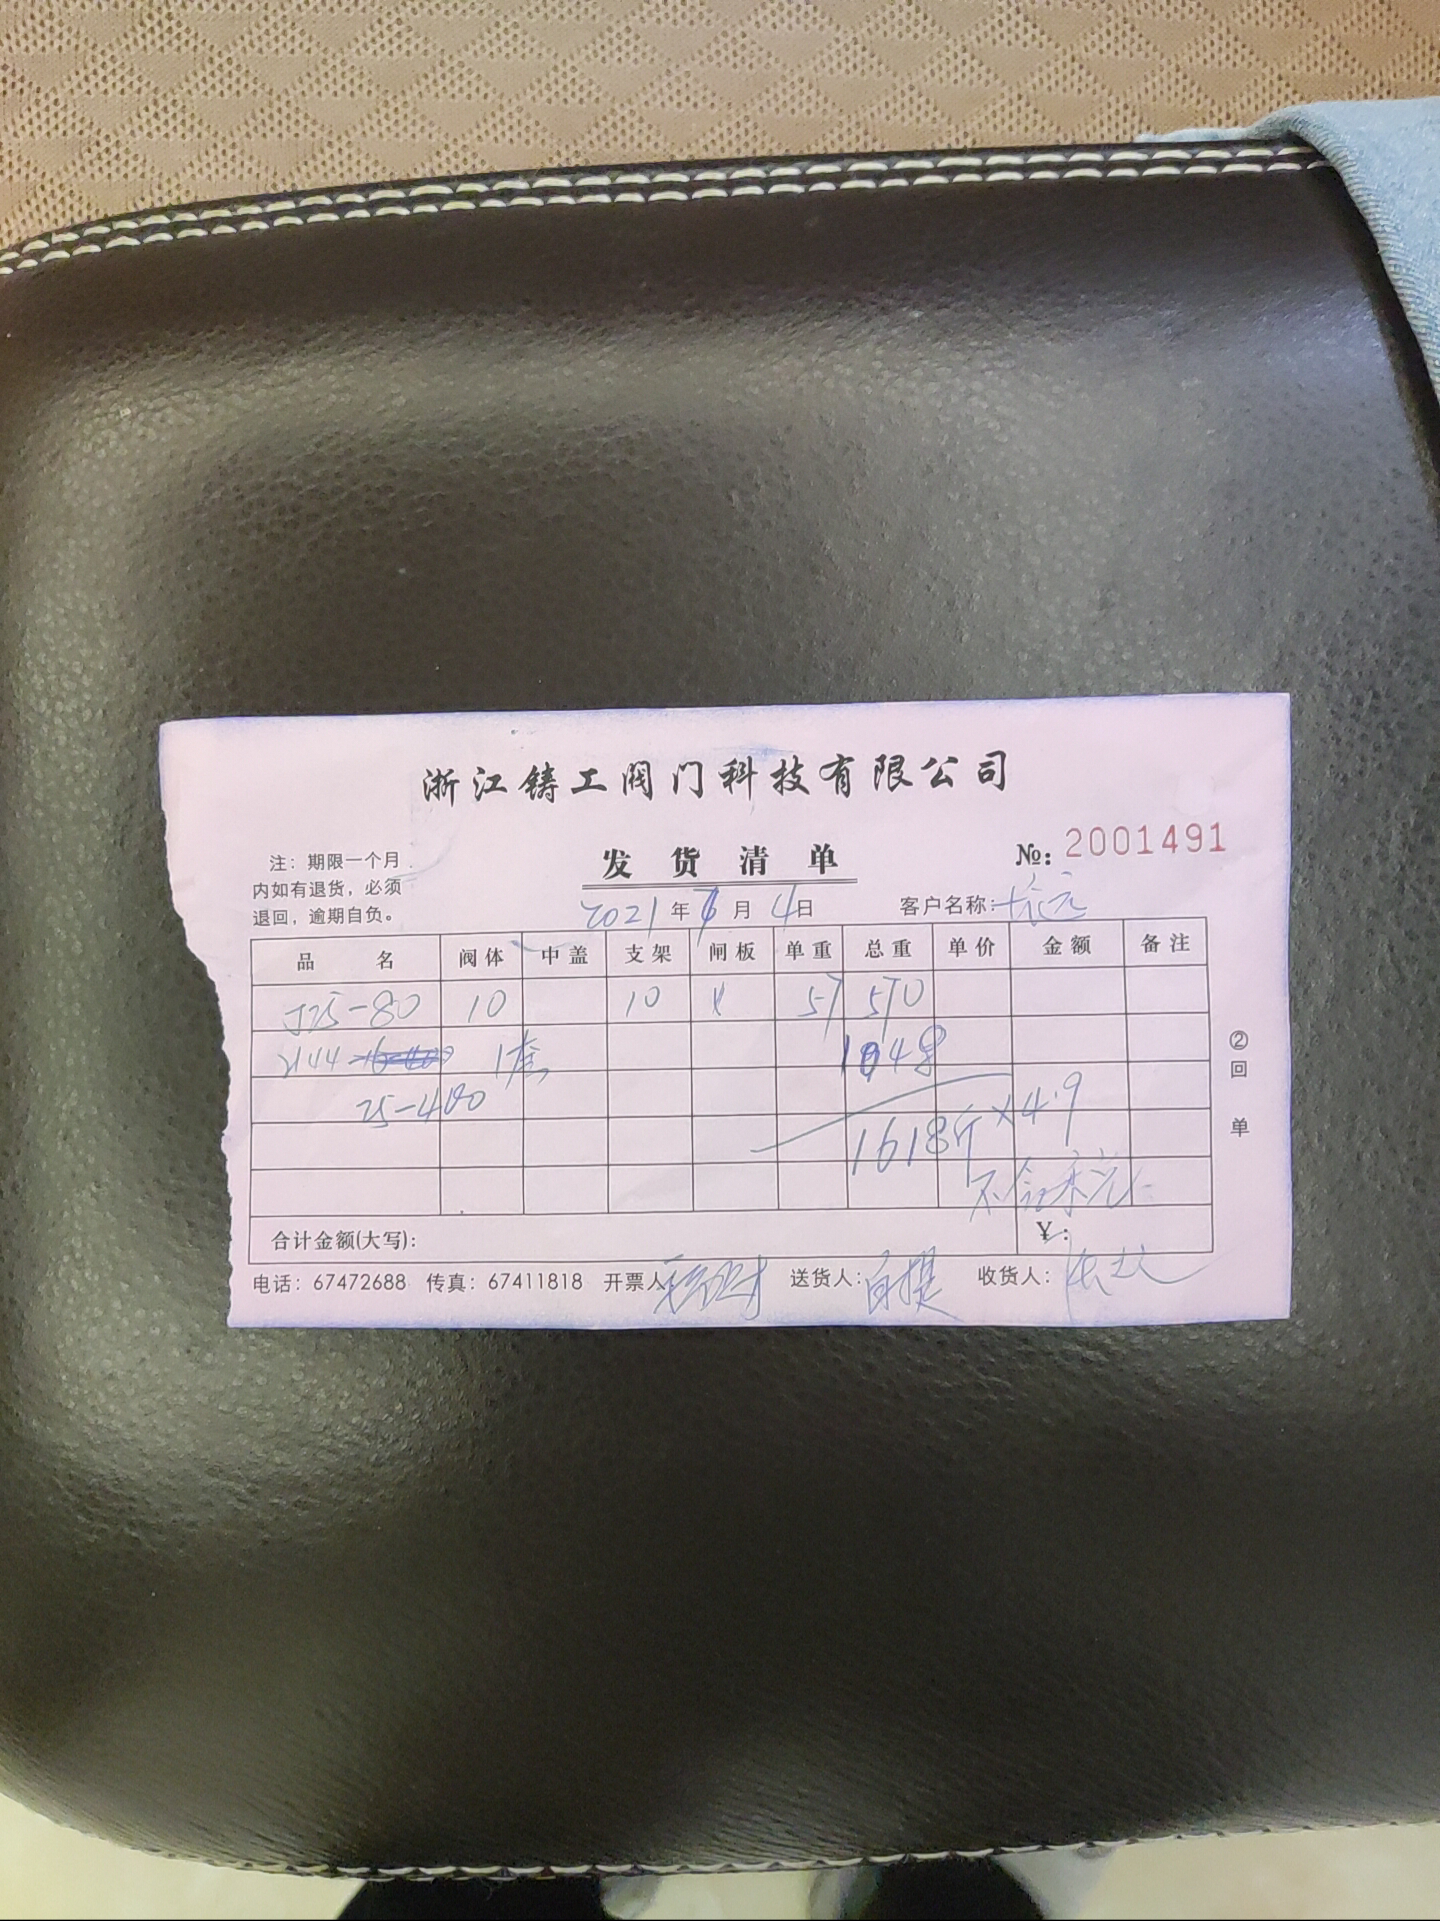 浙江铸工阀门科技有限公司
注：期限一个月
内如有退货，必须
退回，逾期自负。
发货清单
№: 2001491
2021年 月4日
客户名称:
品名 阀体 中盖 支架 闸板 单重 总重 单价 金额 备注
J25-80 10 10 57 570
1套 1048
25-400
1618斤×4.9
不含
合计金额(大写): ¥:
电话：67472688 传真：67411818 开票人 送货人: 自提 收货人:
②回单